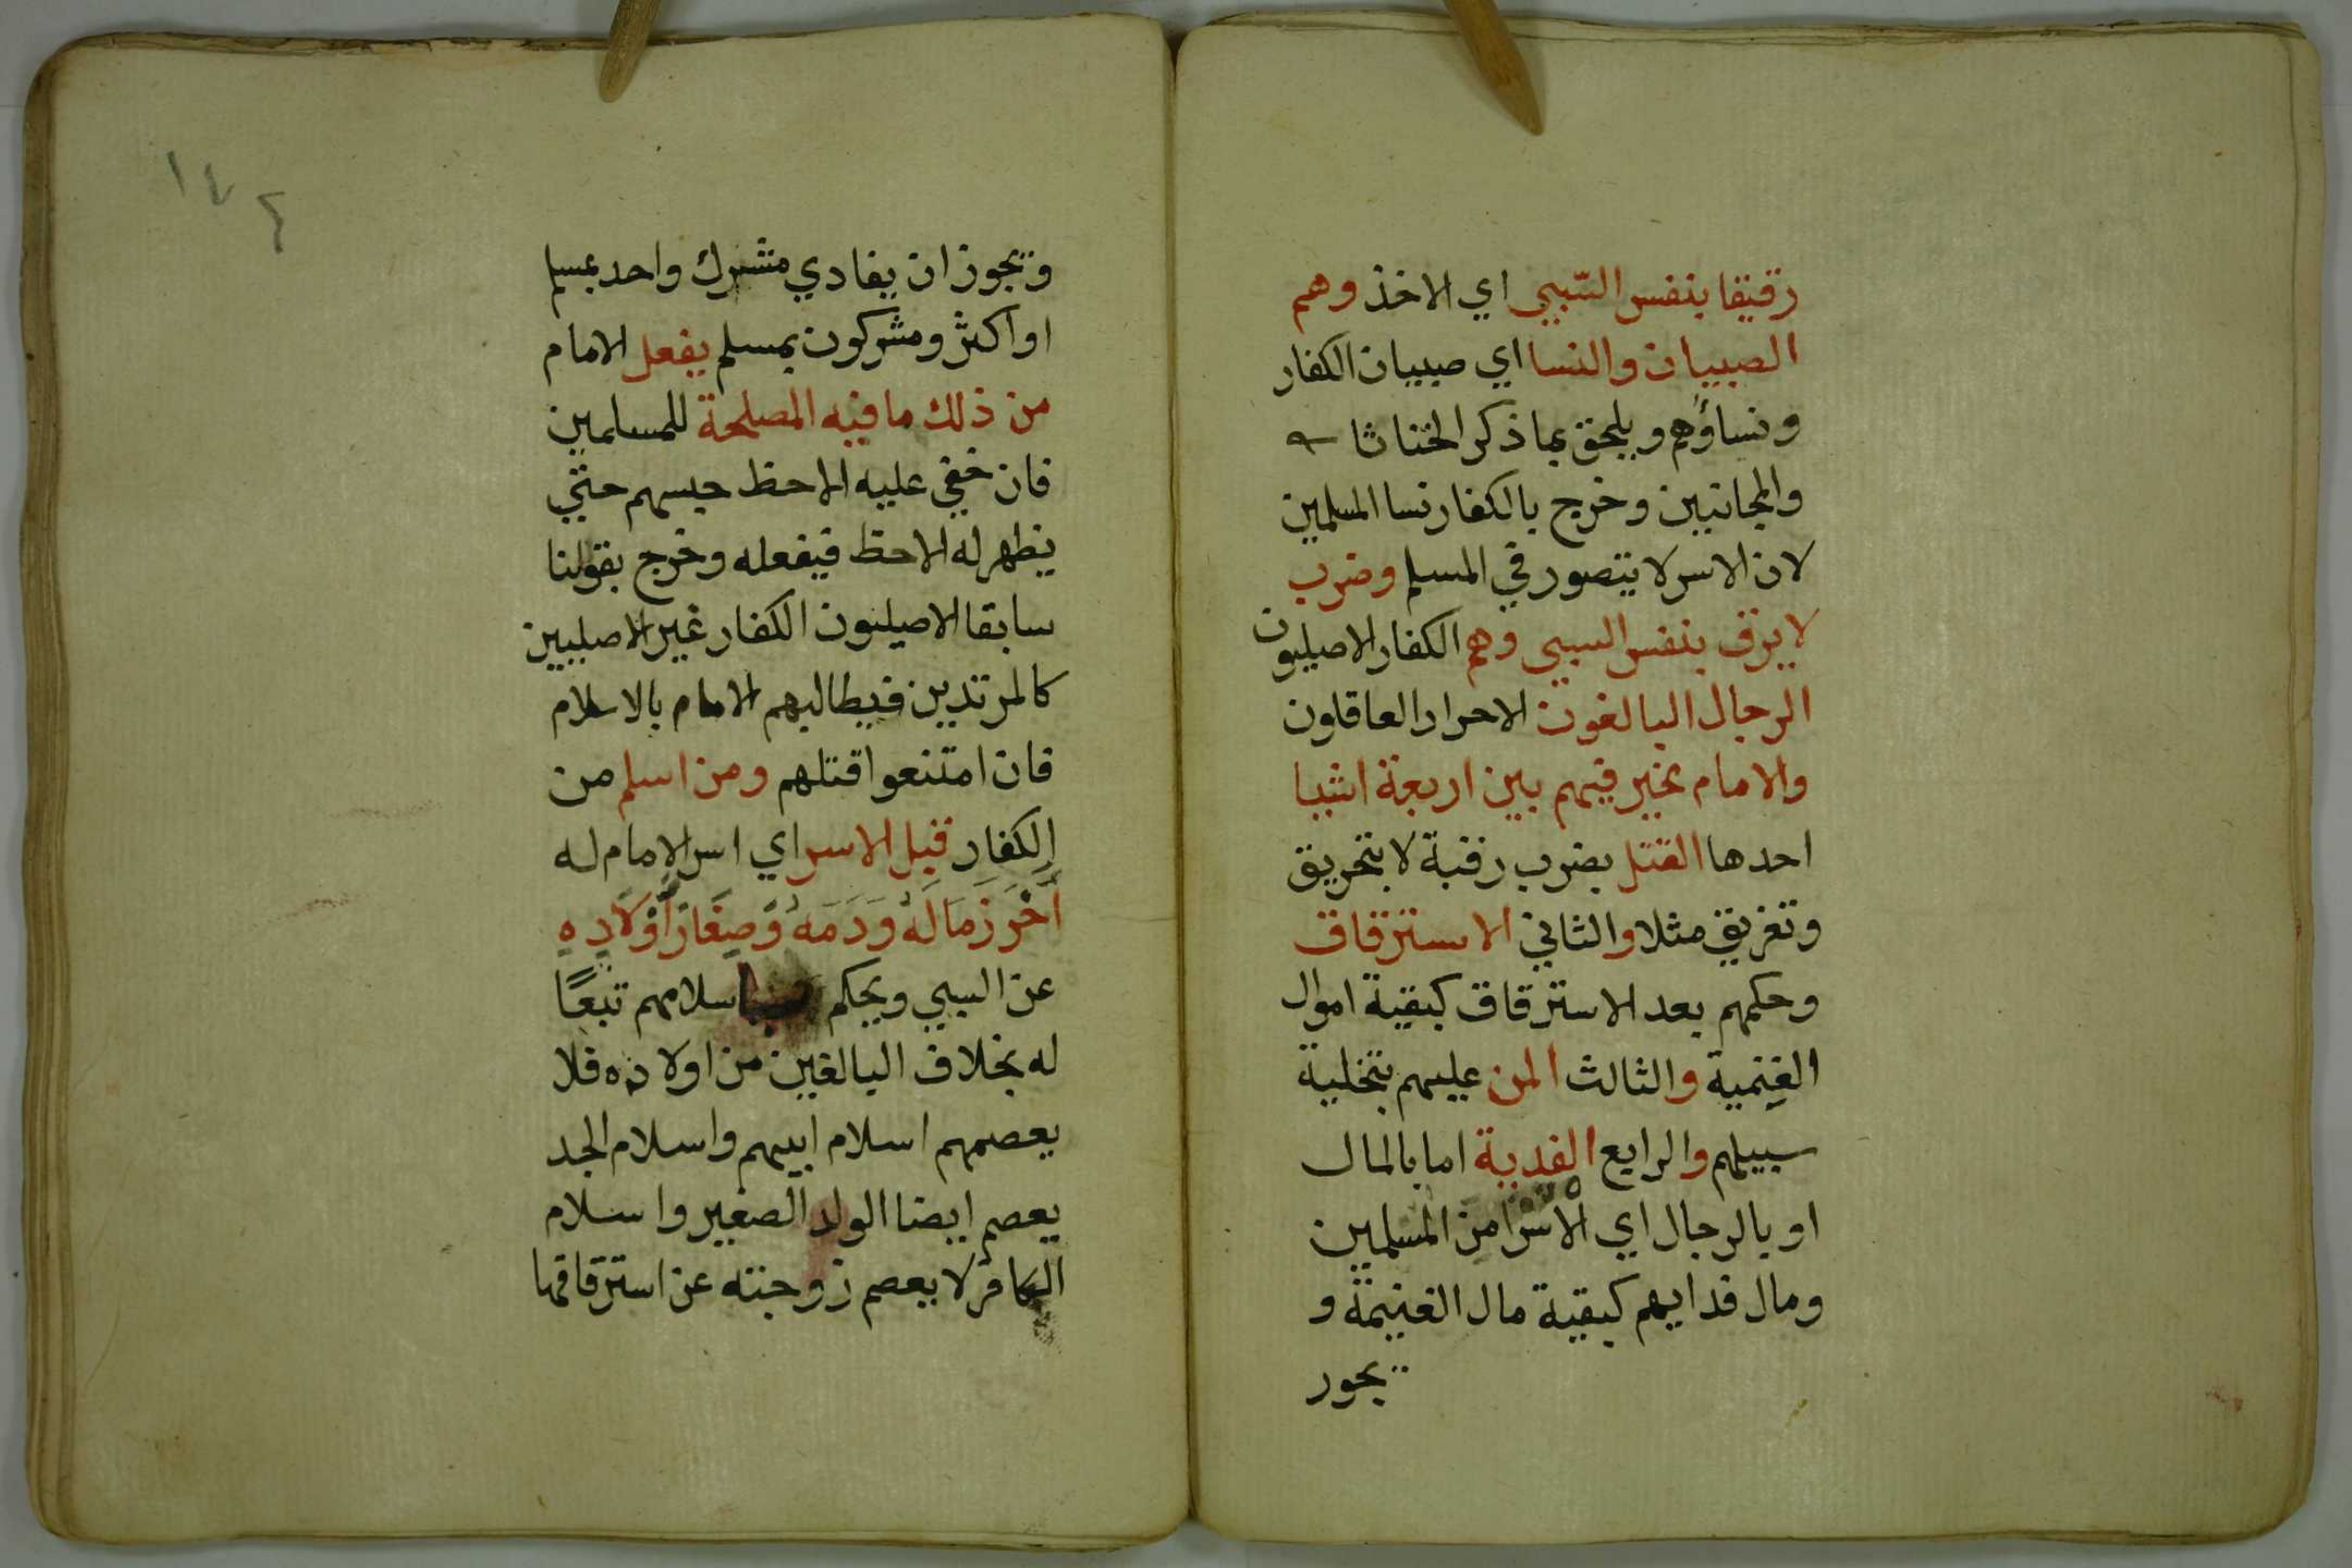 رقيقا بنفس السّبي اي الاخذ وهم
الصبيان والنسا اي صبيان الكفار
ونساؤهم ويلحق بما ذكر الخناثا
والمجانين وخرج بالكفار نسا المسلمين
لان الاسر لا يتصور في المسلم وضرب
لا يرق بنفس السبي وهم الكفار الاصليون
الرجال البالغون الاحرار العاقلون
والامام مخير فيهم بين اربعة اشيا
احدها القتل بضرب رقبة لا بتحريق
وتغريق مثلا والثاني الاسترقاق
وحكمهم بعد الاسترقاق كبقية اموال
الغنمية والثالث المن عليهم بتخلية
سبيلهم والرابع الفدية اما بالمال
او بالرجال اي الاسرا من المسلمين
ومال فدايهم كبقية مال الغنيمة و
يجوز
١٧٤
ويجوز ان يفادي مشرك واحد بمسلم
او اكثر ومشركون بمسلم يفعل الامام
من ذلك ما فيه المصلحة للمسلمين
فان خفي عليه الاحظ حبسهم حتي
يظهر له الاحظ فيفعله وخرج بقولنا
سابقا الاصليون الكفار غير الاصليين
كالمرتدين فيطالبهم الامام بالاسلام
فان امتنعوا قتلهم ومن اسلم من
الكفار قبل الاسر اي اسر الامام له
أَحْرَزَ مَالَهُ وَدَمَهُ وَصِغَارَ أَوْلَادِهِ
عن السبي ويحكم باسلامهم تبعًا
له بخلاف البالغين من اولاده فلا
يعصمهم اسلام ابيهم واسلام الجد
يعصم ايضا الولد الصغير واسلام
الكافر لا يعصم زوجته عن استرقاقها